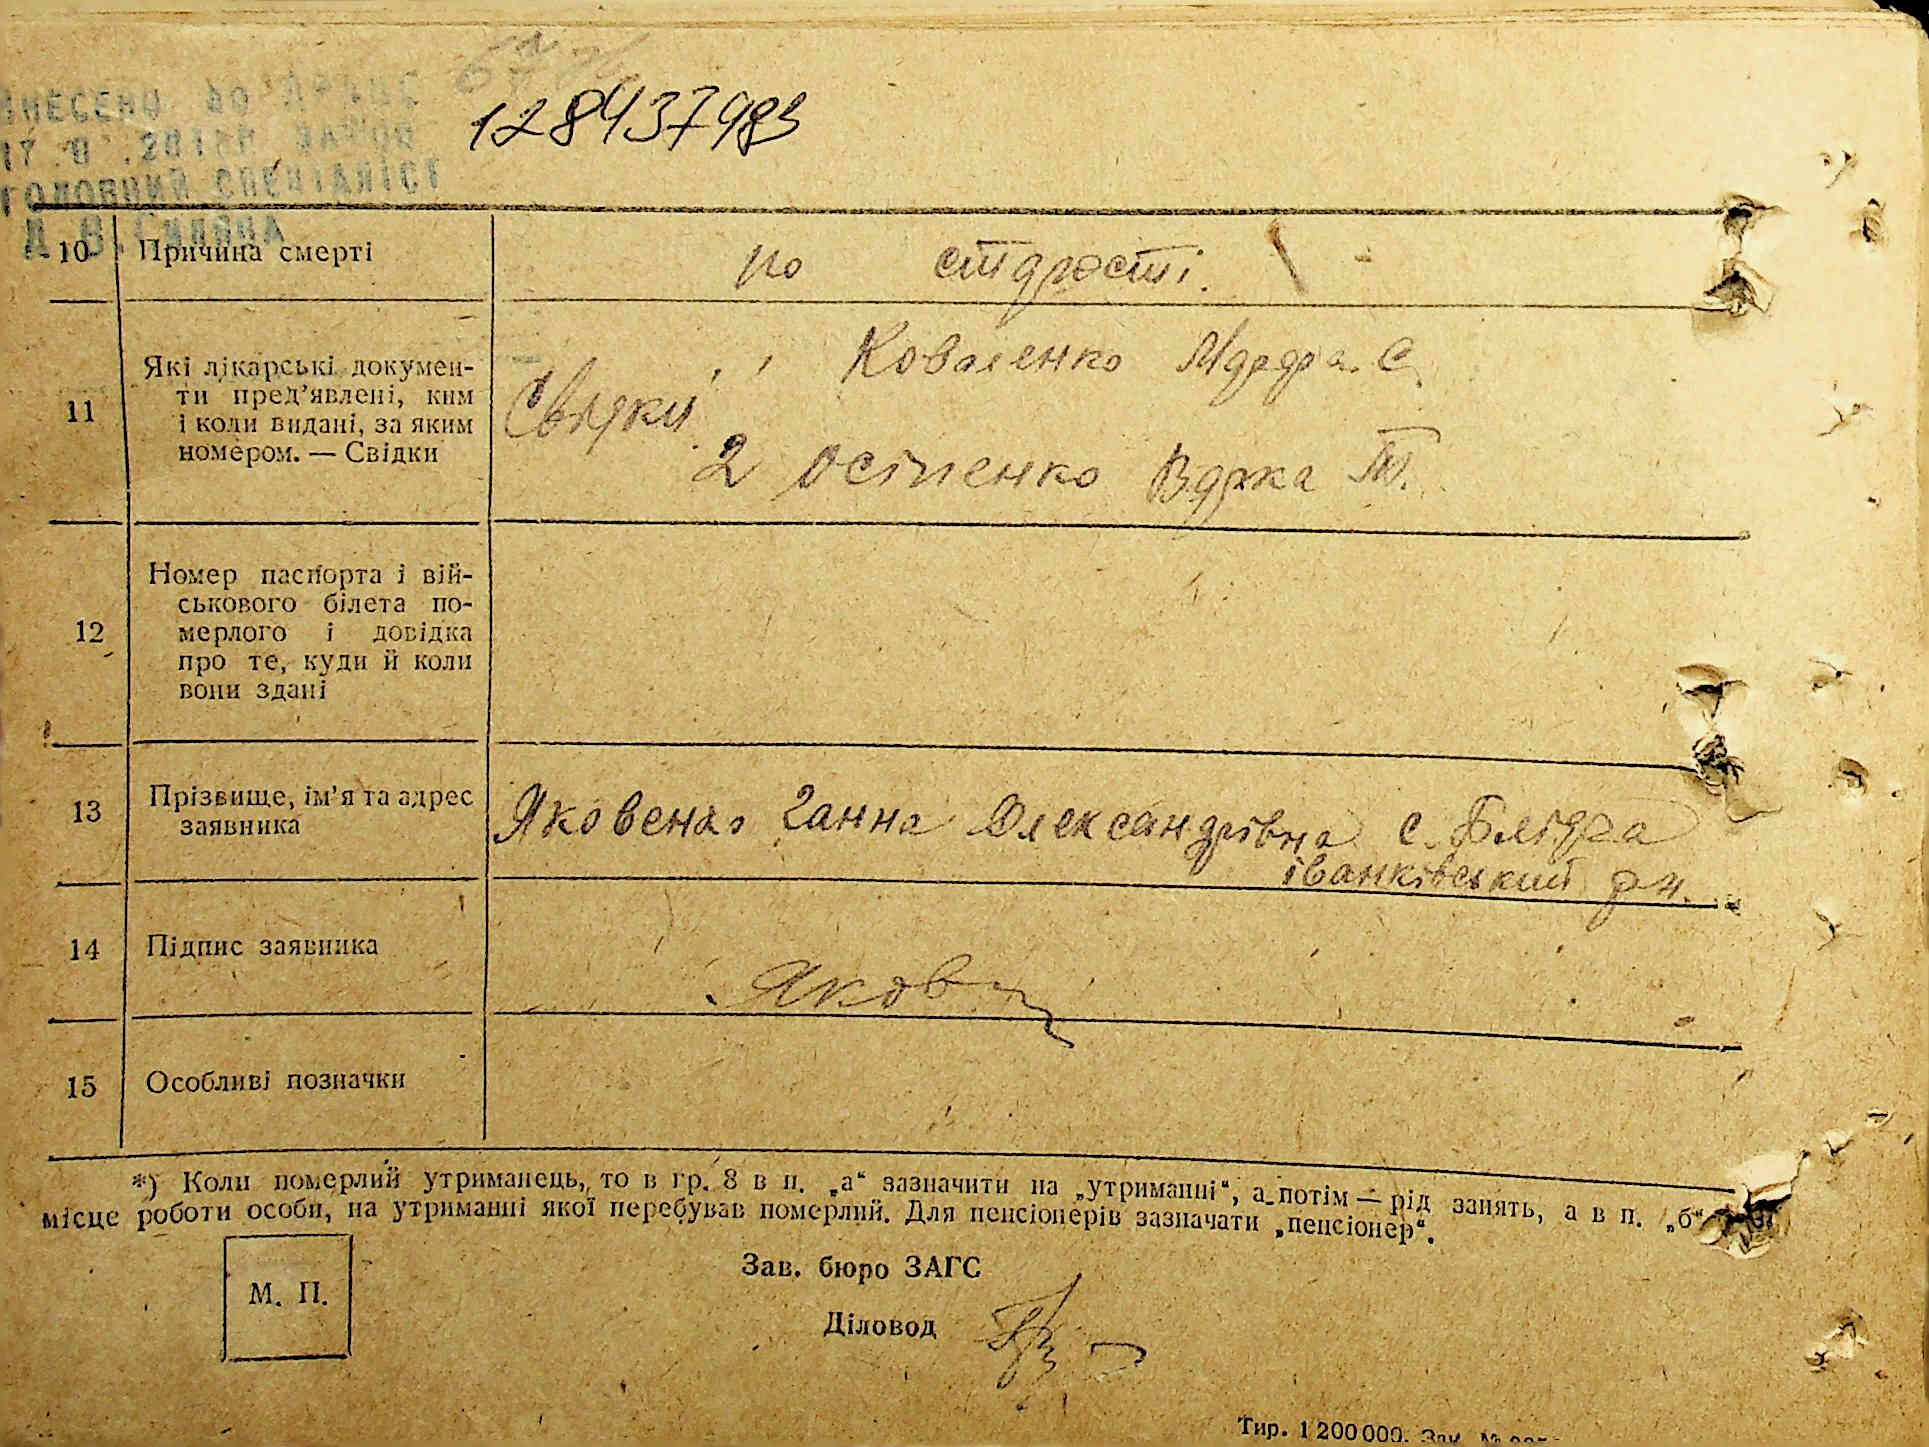 ВНЕСЕНО ДО ДРАЦС
ГОЛОВНИЙ СПЕЦІАЛІСТ
128437983
10 Причина смерті по старості.
11 Які лікарські докумен-
ти пред'явлені, ким
і коли видані, за яким
номером. — Свідки
Свідки
Коваленко С.
2 Осіпенко Т.
12 Номер паспорта і вій-
ськового білета по-
мерлого і довідка
про те, куди й коли
вони здані
13 Прізвище, ім'я та адрес
заявника
Ганна Олександрівна с.
іванківський рн.
14 Підпис заявника
Яков
15 Особливі позначки
*) Коли померлий утриманець, то в гр. 8 в п. „а“ зазначити на „утриманні“, а потім — рід занять, а в п. „б“
місце роботи особи, на утриманні якої перебував померлий. Для пенсіонерів зазначати „пенсіонер“.
М. П.
Зав. бюро ЗАГС
Діловод
Тир. 1 200 000. Зак. №